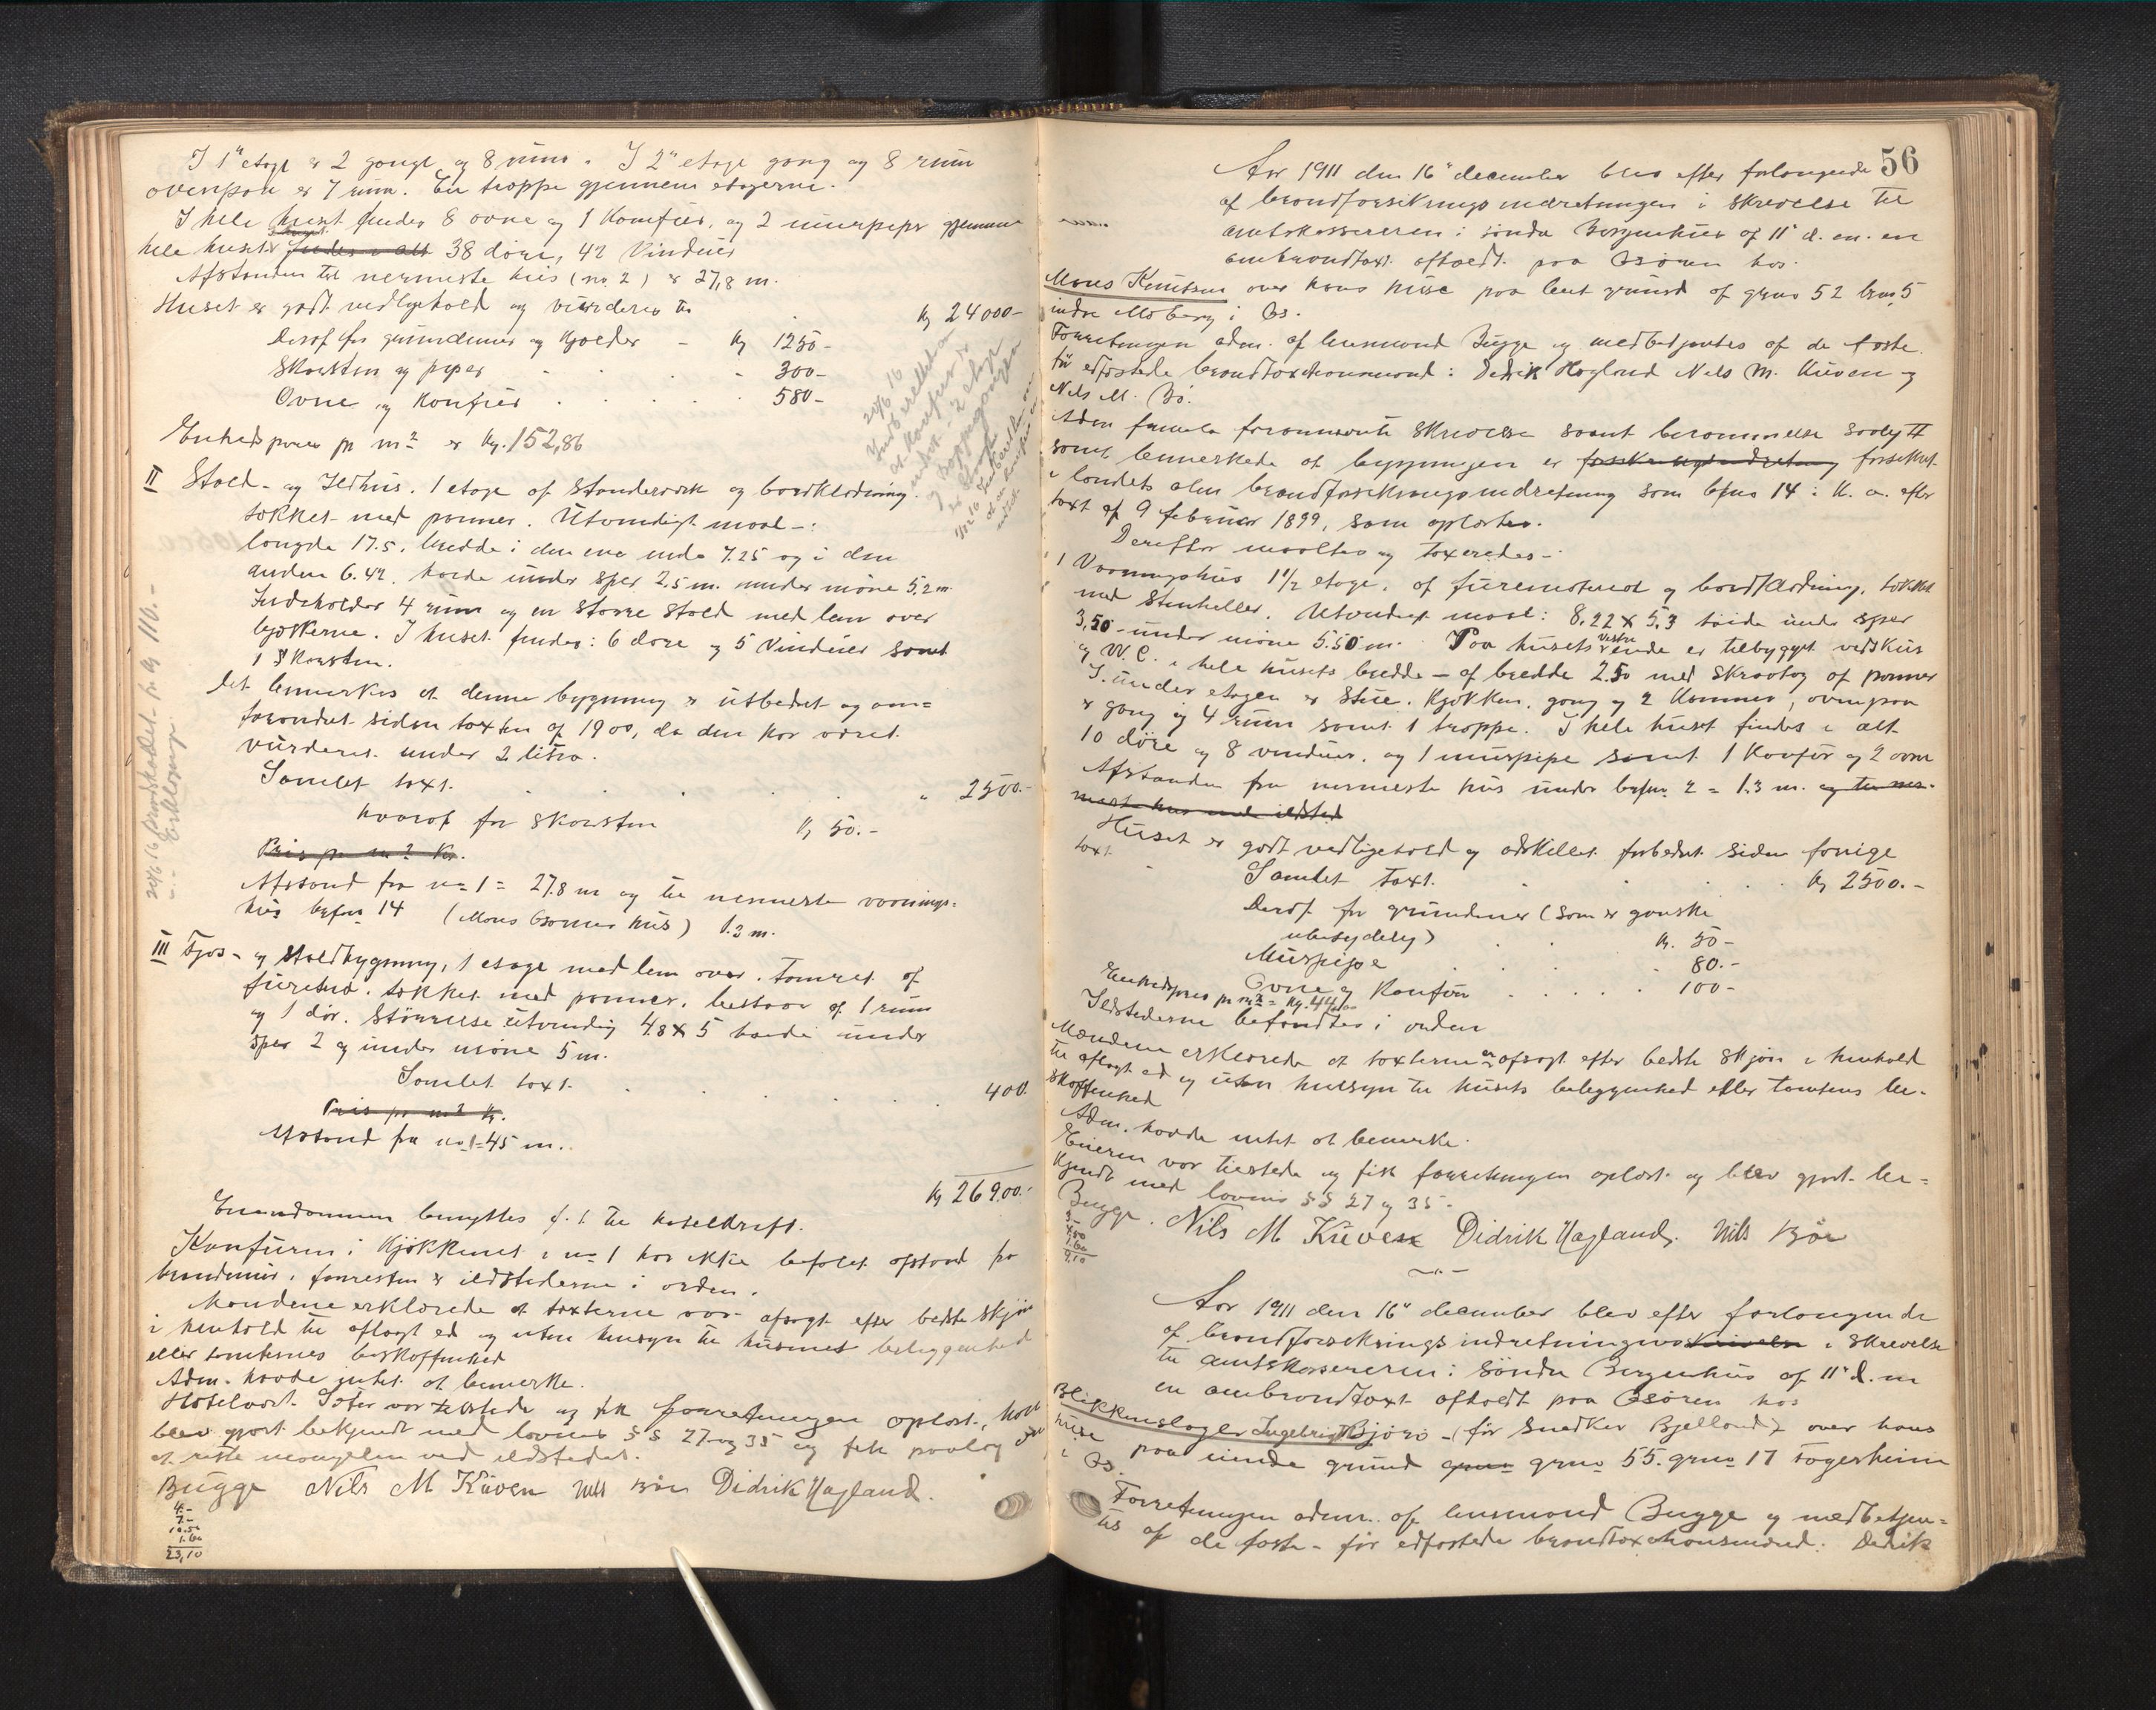 I 1" etage er 2 gange og 8 rum. I 2" etage gang og 8 rum
ovenpaa er 7 rum. En trappe gjennem etagerne.
I hele huset findes 8 ovne og 1 Komfur, og 2 murpiper gjennem
hele huset findes i alt 38 døre, 42 Vinduer
Afstanden til nermeste hus (no 2) er 27,8 m.
Huset er godt vedligehold og vurderes til Kr 24000-
Deraf for grundmur og Kjelder - Kr 1250-
Skorsten og piper 300-
Ovne og Konfur 580-
Enhedsprisen pr m² er Kr. 152,86
II Stald- og Ildhus. 1 etage af standerværk og bordklædning.
tækket med panner. Utvendigt maal-:
længde 17.5. bredde i den ene ende 7.25 og i den
anden 6.42. høide under sper 2.5 m. under møne 5,2 m.
Indeholder 4 rum og en større stald med lem over
bjelkerne. I huset findes: 6 døre og 5 Vinduer samt
1 Skorsten.
Det bemerkes at denne bygning er utbedret og om=
forandret siden taxten af 1900, da den har været
vurderet under 2 litra.
Samlet taxt. " 2500.-
hvoraf for skorsten Kr 50.-
Pris pr m² Kr.
Afstand fra no 1 = 27.8 m og til nermeste vaanings=
hus byfno 14 (Mons hus) 1.3 m.
III Fjøs- og staldbygning, 1 etage med lem over. Tømret af
furetræ. tækket med panner. bestaar af 1 rum
og 1 dør. Størrelse utvendig 4.8 x 5 høide under
sper 2 og under møne 5 m.
Samlet taxt 400.
Pris pr m² Kr.
Afstand fra no 1 = 45 m.
Kr 26900.-
Eiendommen benyttes f. t. til hoteldrift.
Konfuren i Kjøkkenet i no 1 har ikke befalet afstand fra
brandmur, forresten er ildstederne i orden.
Mændene erklærede at taxterne var afsagt efter bedste skjøn
i henhold til aflagt ed og uten hensyn til husenes beliggenhed
eller tomternes beskaffenhed
Adm. havde intet at bemerke.
Hotelvært var tilstede og fik forretningen oplæst,
blev gjort bekjendt med lovens §§ 27 og 35 og fik paalæg om
at rette mangelen ved ildstedet.
Bugge Nils M Küven Nils Bør Didrik Hagland.
4.-
7.-
10.50
1.60
23,10
56
Aar 1911 den 16" december blev efter forlangende
af brandforsikringsindretningen i skrivelse til
amtskassereren i søndre Bergenhus af 11" d. m. en
ombrandtaxt afholdt paa Osøren hos
Mons Knutsen over hans huse paa leiet grund af gno 52 bno 5
indre Moberg i Os.
Forretningen adm. af lensmand Bugge og medbetjentes af de faste
før edfæstede brandtaxtmænd: Didrik Hagland Nils M. Küven og
Nils M. Bø.
Adm fremla foranneevnte skrivelse samt berammelse
samt bemerkede at bygningen er forsikringsindretning forsikret
i landets alm brandforsikringsindretning som bfno 14 i K. a. efter
taxt af 9 februar 1899, som oplæstes.
Derefter maaltes og taxeredes-:
1 Vaaningshus 1½ etage, af furemateriel og bordklædning, tækket
med stenheller. Utvendigt maal: 8,22 x 5,3 høide under sper
3,50 - under møne 5.50 m. Paa husets vestre ende er tilbygget vedskur
og W. C. i hele husets bredde - af bredde 2.50 med skraatag af panner
I under etagen er Stue. Kjøkken, gang og 2 Kammer, ovenpaa
er gang og 4 rum samt 1 trappe. I hele huset findes i alt
10 døre og 8 vinduer, og 1 murpipe samt 1 Konfur og 2 ovne
Afstanden fra nermeste hus under byfno 2 = 1.3 m. og til ner-
meste hus med ildsted
Huset er godt vedligehold og adskillet forbedret siden forrige
taxt. Samlet taxt. Kr 2500.-
Deraf for grundmur (som er ganske
ubetydelig) Kr. 50-
Murpipe 80.-
Ovne og Konfur 100-
Enhedspris pr m² = Kr. 44
Ildstederne befandtes i orden
Mændene erklærede at taxterne er afsagt efter bedste skjøn i henhold
til aflagt ed og uten hensyn til husets beliggenhed eller tomtens be-
skaffenhed
Adm. havde intet at bemerke.
Eieren var tilstede og fik forretningen oplæst og blev gjort be=
kjendt med lovens §§ 27 og 35.
Bugge. Nils M Küven Didrik Hagland. Nils Bør
Aar 1911 den 16" december blev efter forlangende
af brandforsikringsindretningen i skrivelse
til amtskassereren i søndre Bergenhus af 11" d. m
en ombrandtaxt afholdt paa Osøren hos
Blikkenslager Ingebrigt Bjørø - (før Snedker Bjelland) over hans
huse paa grund gno 55. bno 17 Fagerheim
i Os.
Forretningen adm. af lensmand Bugge og medbetjen=
tes af de faste - før edfæstede brandtaxtmænd: Didrik